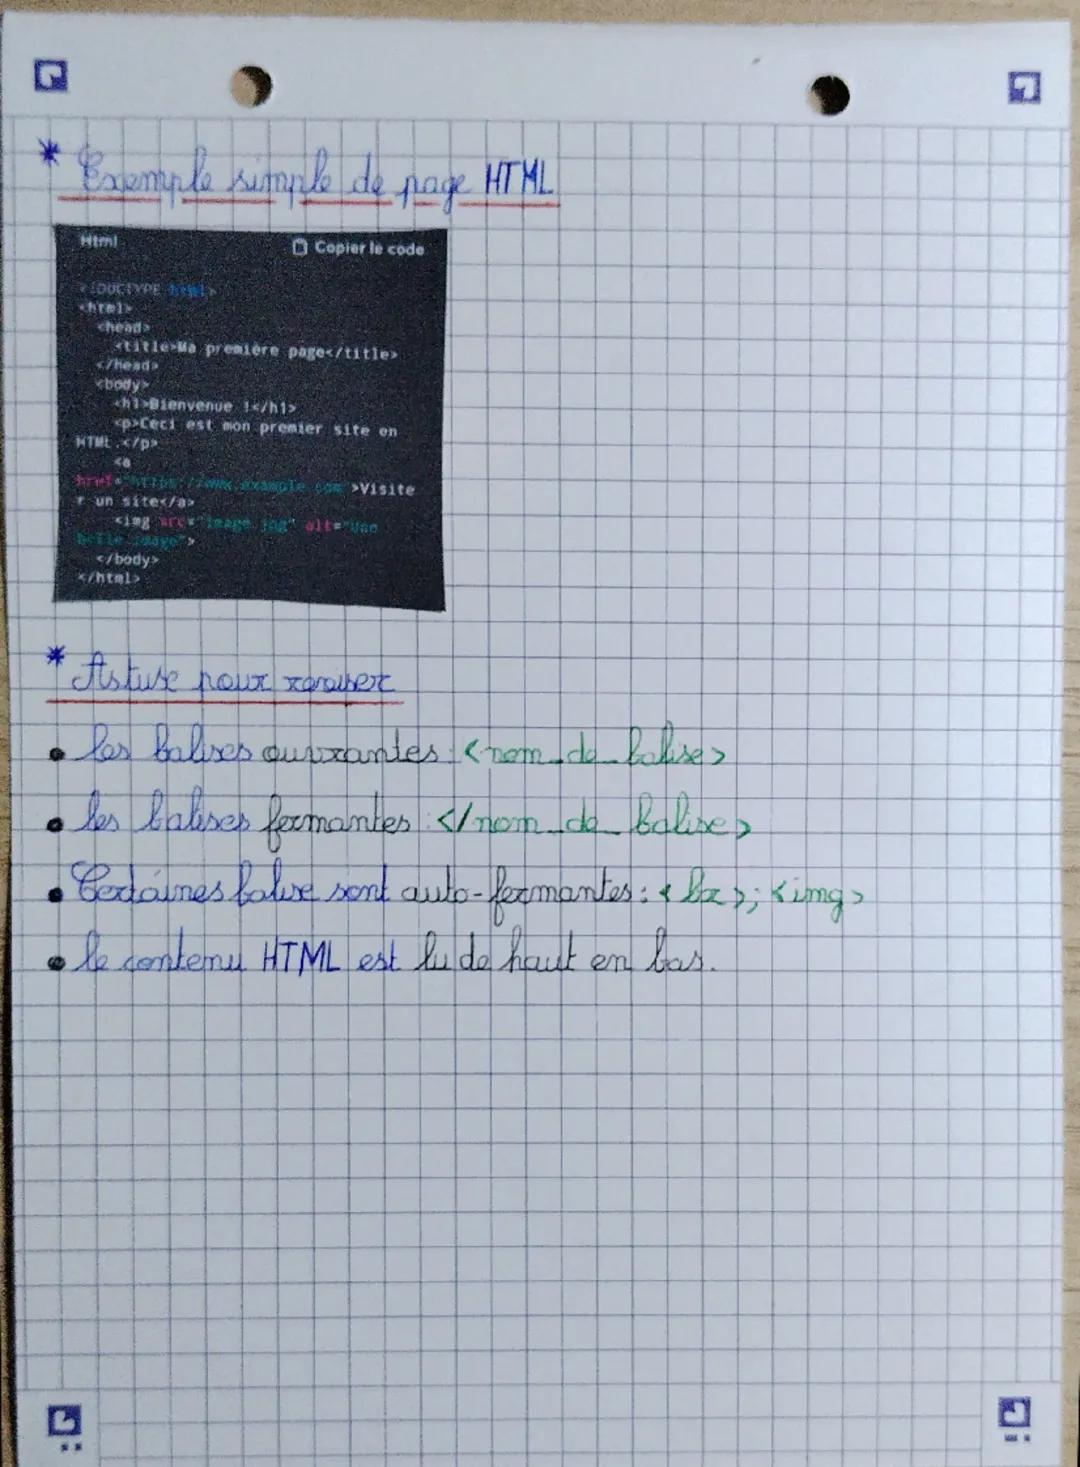 * Exemple simple de page HTML
Html Copier le code
<!DOCTYPE html>
<html>
<head>
<title>Ma première page</title>
</head>
<body>
<h1>Bienvenue !</h1>
<p>Ceci est mon premier site en
HTML.</p>
<a
href="https://www.example.com">Visite
r un site</a>
<img src="image.jpg" alt="Une
belle image">
</body>
</html>
* Astuse pour reviser
• les balises ouvrantes : <nom_de_balise>
• les balises fermantes : </nom_de_balise>
• Certaines balise sont auto-fermantes : <br>; <img>
• le contenu HTML est lu de haut en bas.